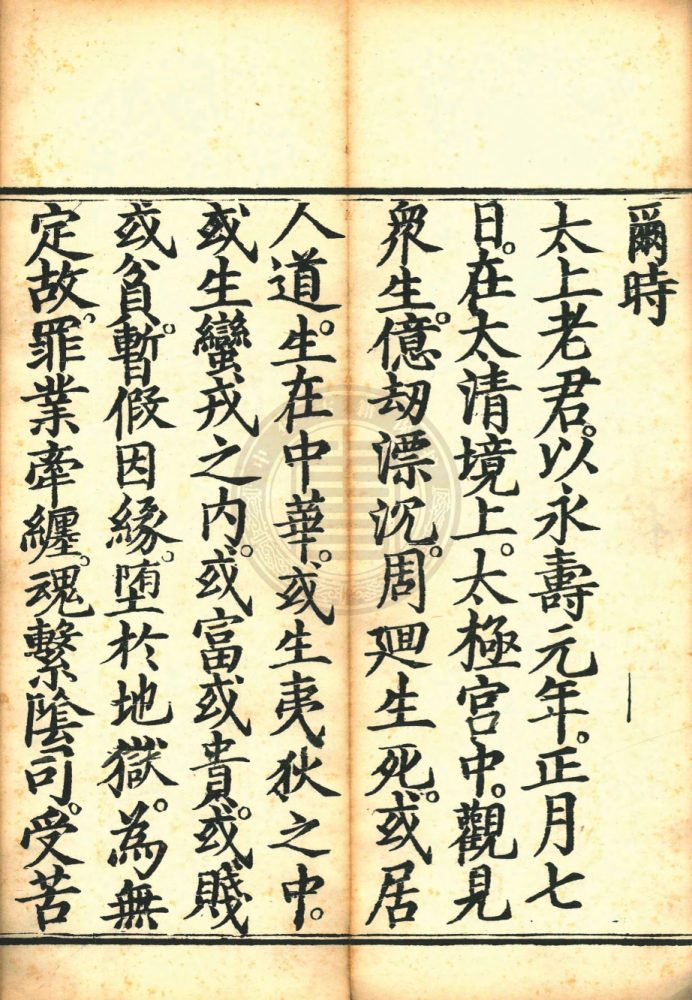 爾時
太上老君。以永壽元年。正月七
日。在太清境上。太極宮中。觀見
衆生。億劫漂沉。周廻生死。或居
人道。生在中華。或生夷狄之中。
或生蠻戎之內。或富或貴。或賤
或貧。暫假因緣。墮於地獄。為無
定故。罪業牽纏。魂繫陰司。受苦